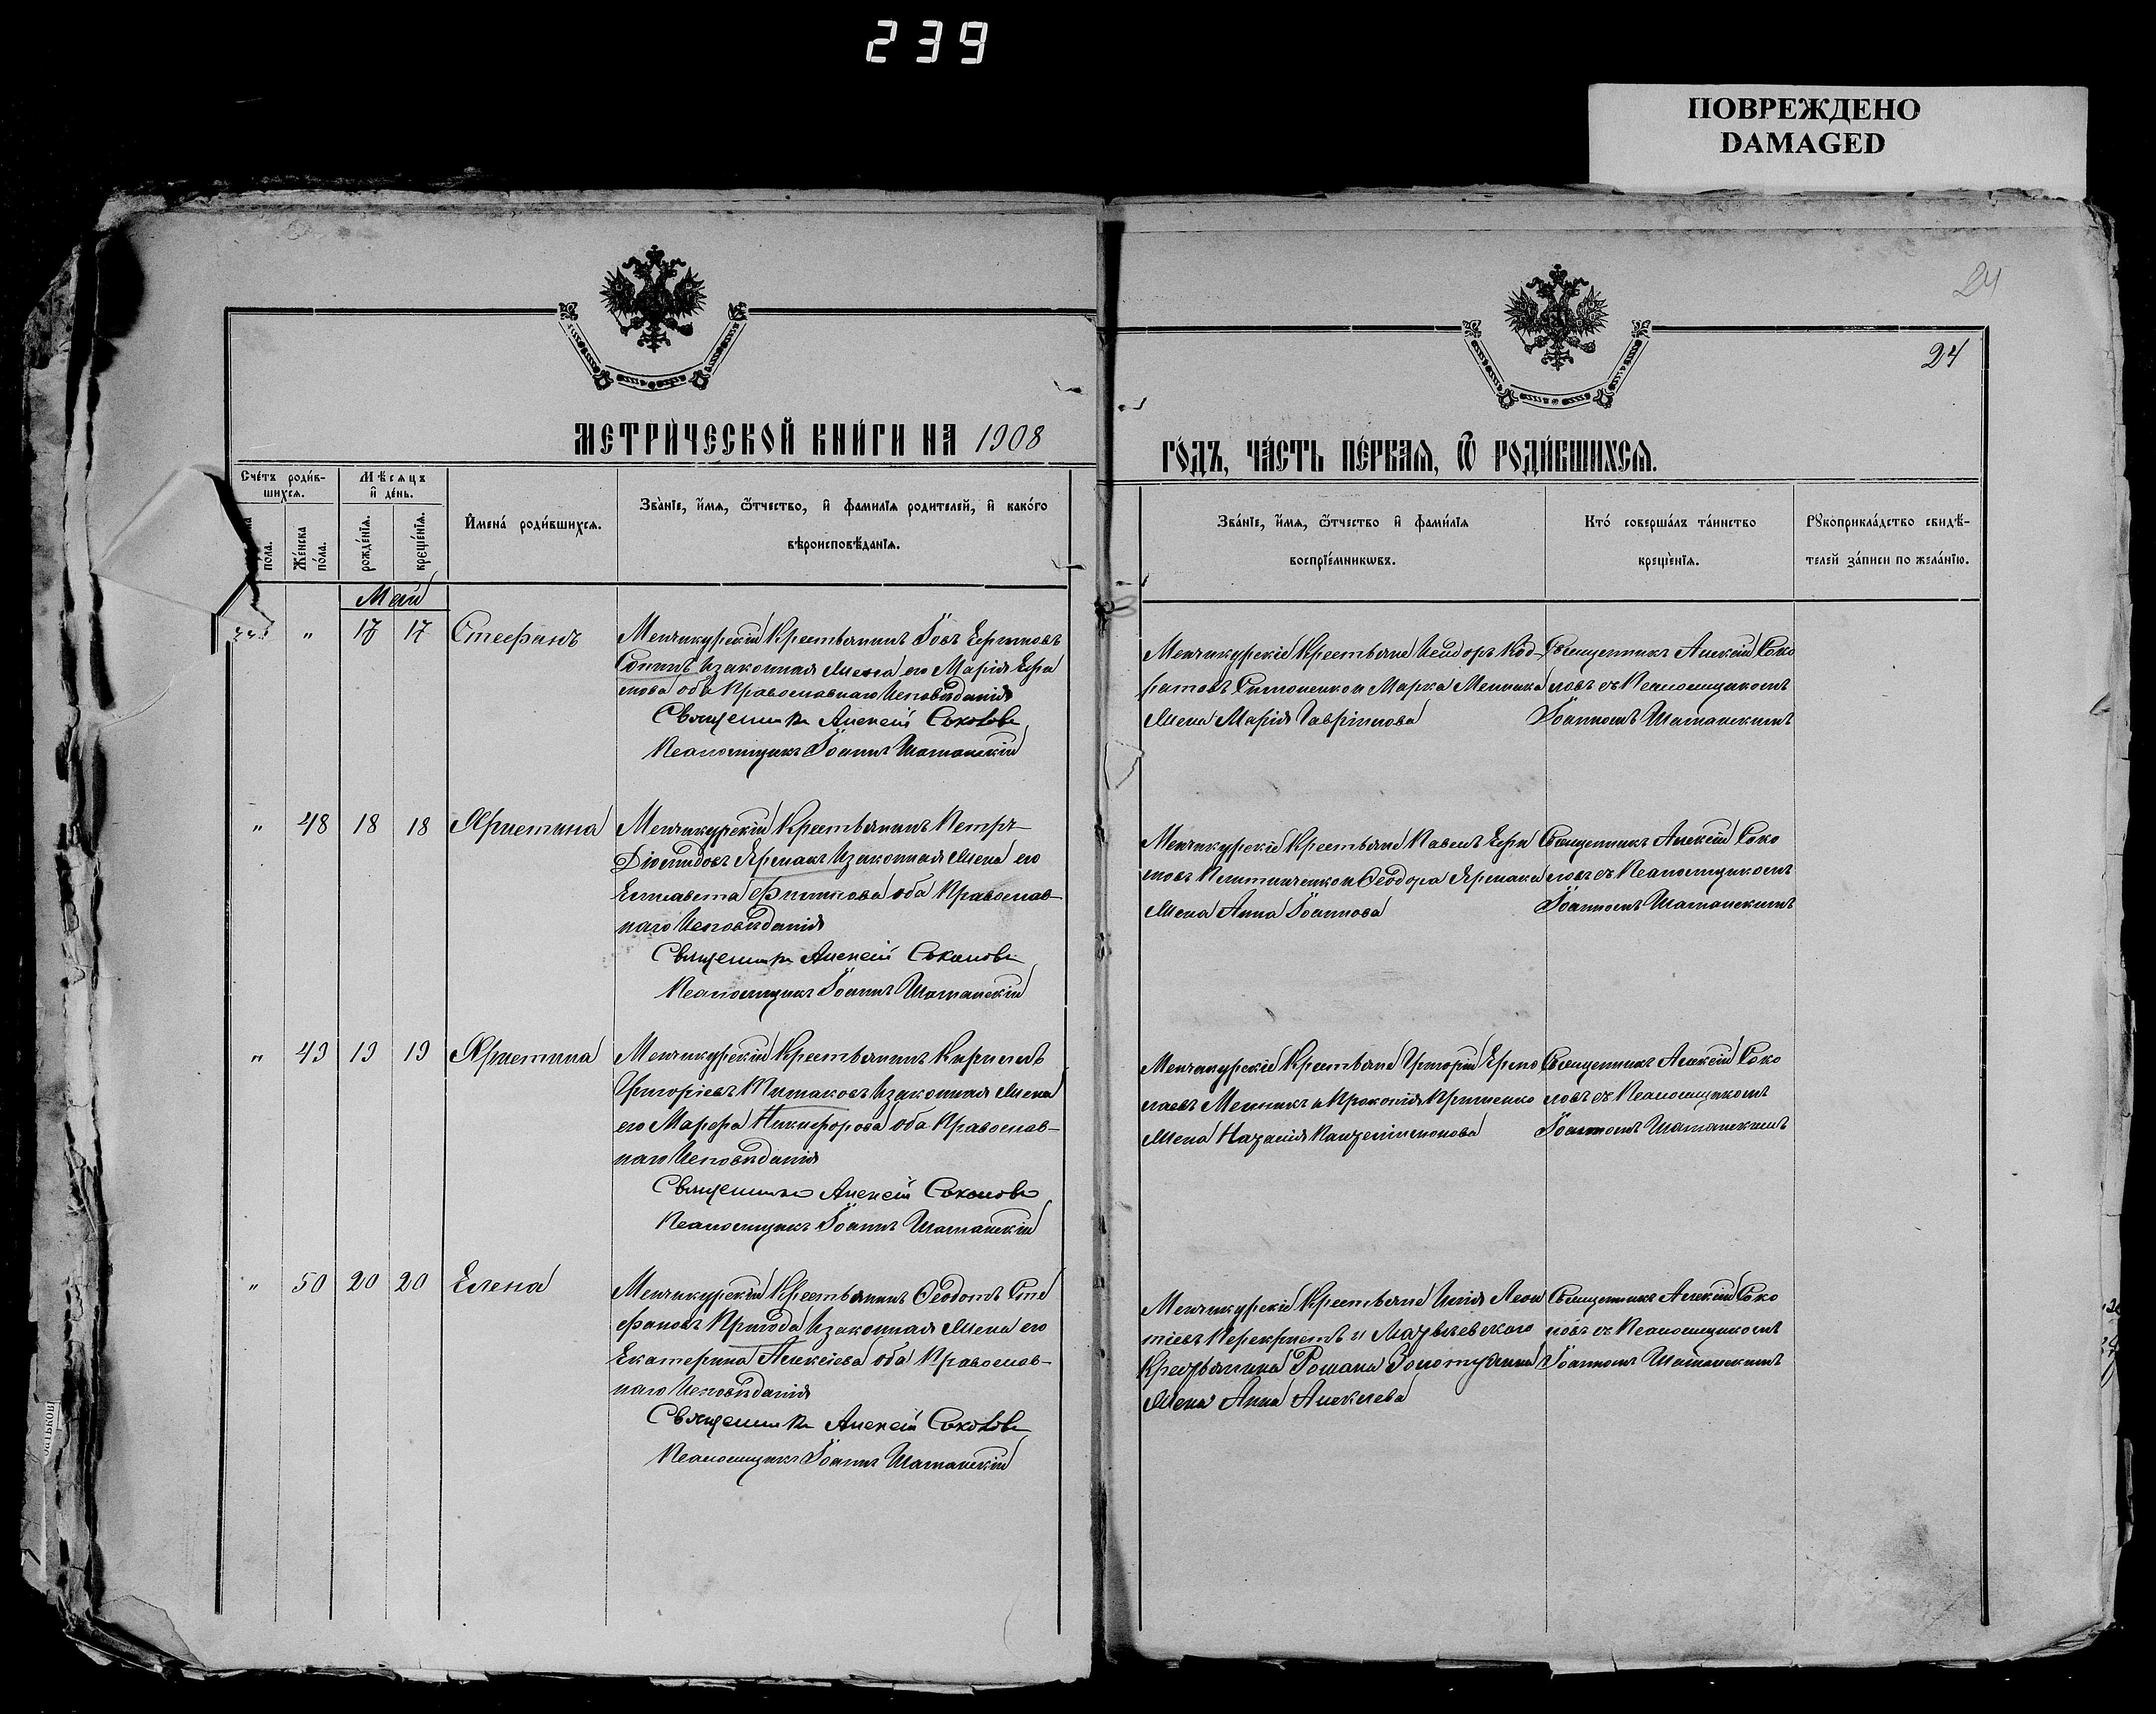 239
ПОВРЕЖДЕНО
DAMAGED
24
24
МЕТРИ́ЧЕСКОЙ КНИ́ГИ НА 1908
ГО́ДЪ, ЧА́СТЬ ПЕ́РВАЯ, Ѽ РОДИ́ВШИХСЯ.
Сче́тъ роди́в-
шихся.
Мѣсяцъ
и҆ де́нь.
И҆мена́ роди́вшихся.
Зва́нїе, и҆́мя, ѻ҆́тчество, и҆ фамилїя родителей, и҆ како́го
вѣроисповѣ́данїя.
по́ла.
Же́нска
по́ла.
рожде́нїя.
креще́нїя.
Зва́нїе, и҆́мя, ѻ҆́тчество и҆ фами́лїя
воспрїе́мникѡвъ.
Кто̀ соверша́лъ та́инство
креще́нїя.
Рꙋкоприкла́дство свидѣ́-
телей за́писи по жела́нїю.
Май
" 17 17 Стефанъ
Менчикурскій Крестьянинъ Іовъ Ефимовъ
Сопинъ и законная жена его Марія Ефи
мова оба Православнаго Исповѣданія
Священникъ Алексій Соколовъ
Псаломщикъ Іоаннъ Шатанскій
Менчикурскіе Крестьяне Исидоръ Код-
ратовъ Симоненко и Марка Мельника
жена Марія Гавріилова
Священникъ Алексій Соко
ловъ съ Псаломщикомъ
Іоанномъ Шатанскимъ
" 48 18 18 Христина
Менчикурскій Крестьянинъ Петръ
Діомидовъ Ярмакъ и законная жена его
Елисавета Филиппова оба Православ-
наго Исповѣданія
Священникъ Алексій Соколовъ
Псаломщикъ Іоаннъ Шатанскій
Менчикурскіе Крестьяне Павелъ Ефи
мовъ и Ѳеодора Ярмака
жена Анна Іоаннова
Священникъ Алексій Соко
ловъ съ Псаломщикомъ
Іоанномъ Шатанскимъ
" 49 19 19 Христина
Менчикурскій Крестьянинъ Кириллъ
Григоріевъ и законная жена
его Марфа Никифорова оба Православ-
наго Исповѣданія
Священникъ Алексій Соколовъ
Псаломщикъ Іоаннъ Шатанскій
Менчикурскіе Крестьяне Григорій Ермо
лаевъ Мельникъ и Прокопія
жена Пантелиимонова
Священникъ Алексій Соко
ловъ съ Псаломщикомъ
Іоанномъ Шатанскимъ
" 50 20 20 Елена
Менчикурскій Крестьянинъ Ѳеодотъ Сте
фановъ Пригода и законная жена его
Екатерина Алексіева оба Православ-
наго Исповѣданія
Священникъ Алексій Соколовъ
Псаломщикъ Іоаннъ Шатанскій
Менчикурскіе Крестьяне Илія Леон
тіевъ Перехристъ и Матвѣевского
Крестьянина Романа
жена Анна Алексіева
Священникъ Алексій Соко
ловъ съ Псаломщикомъ
Іоанномъ Шатанскимъ